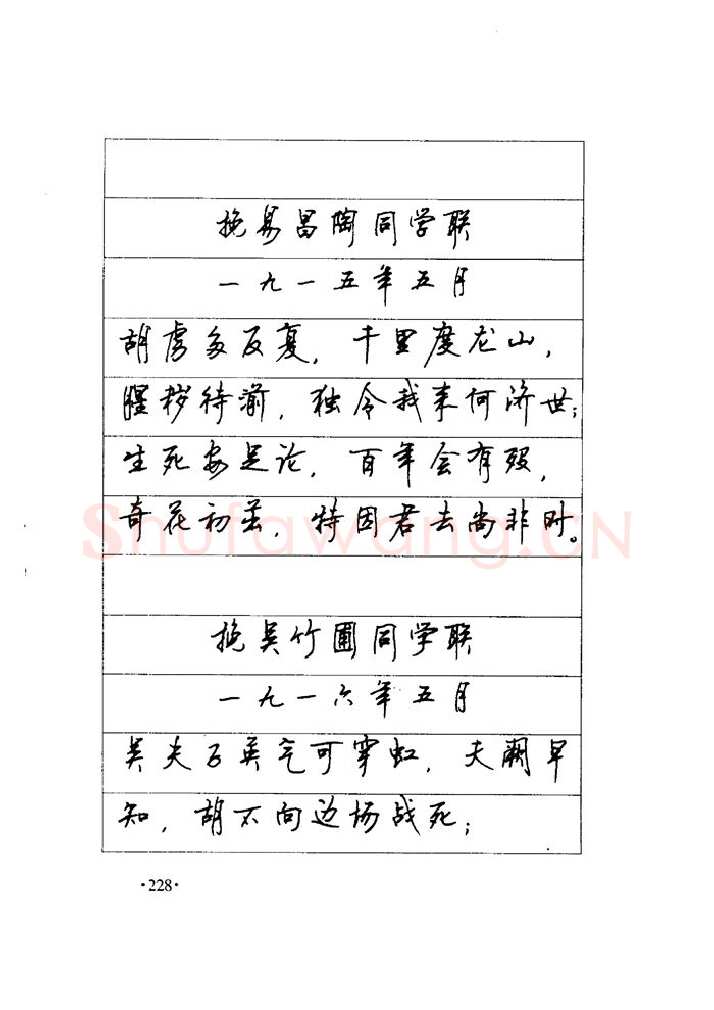 挽易昌陶同学联
一九一五年五月
胡虏多反复，千里度龙山，
腥秽待湔，独令我来何济世；
生死安足论，百年会有殁，
奇花初茁，特因君去尚非时。
挽吴竹圃同学联
一九一六年五月
吴夫子英气可穿虹，夭阏早
知，胡不向边场战死；
·228·
Shufawang.CN